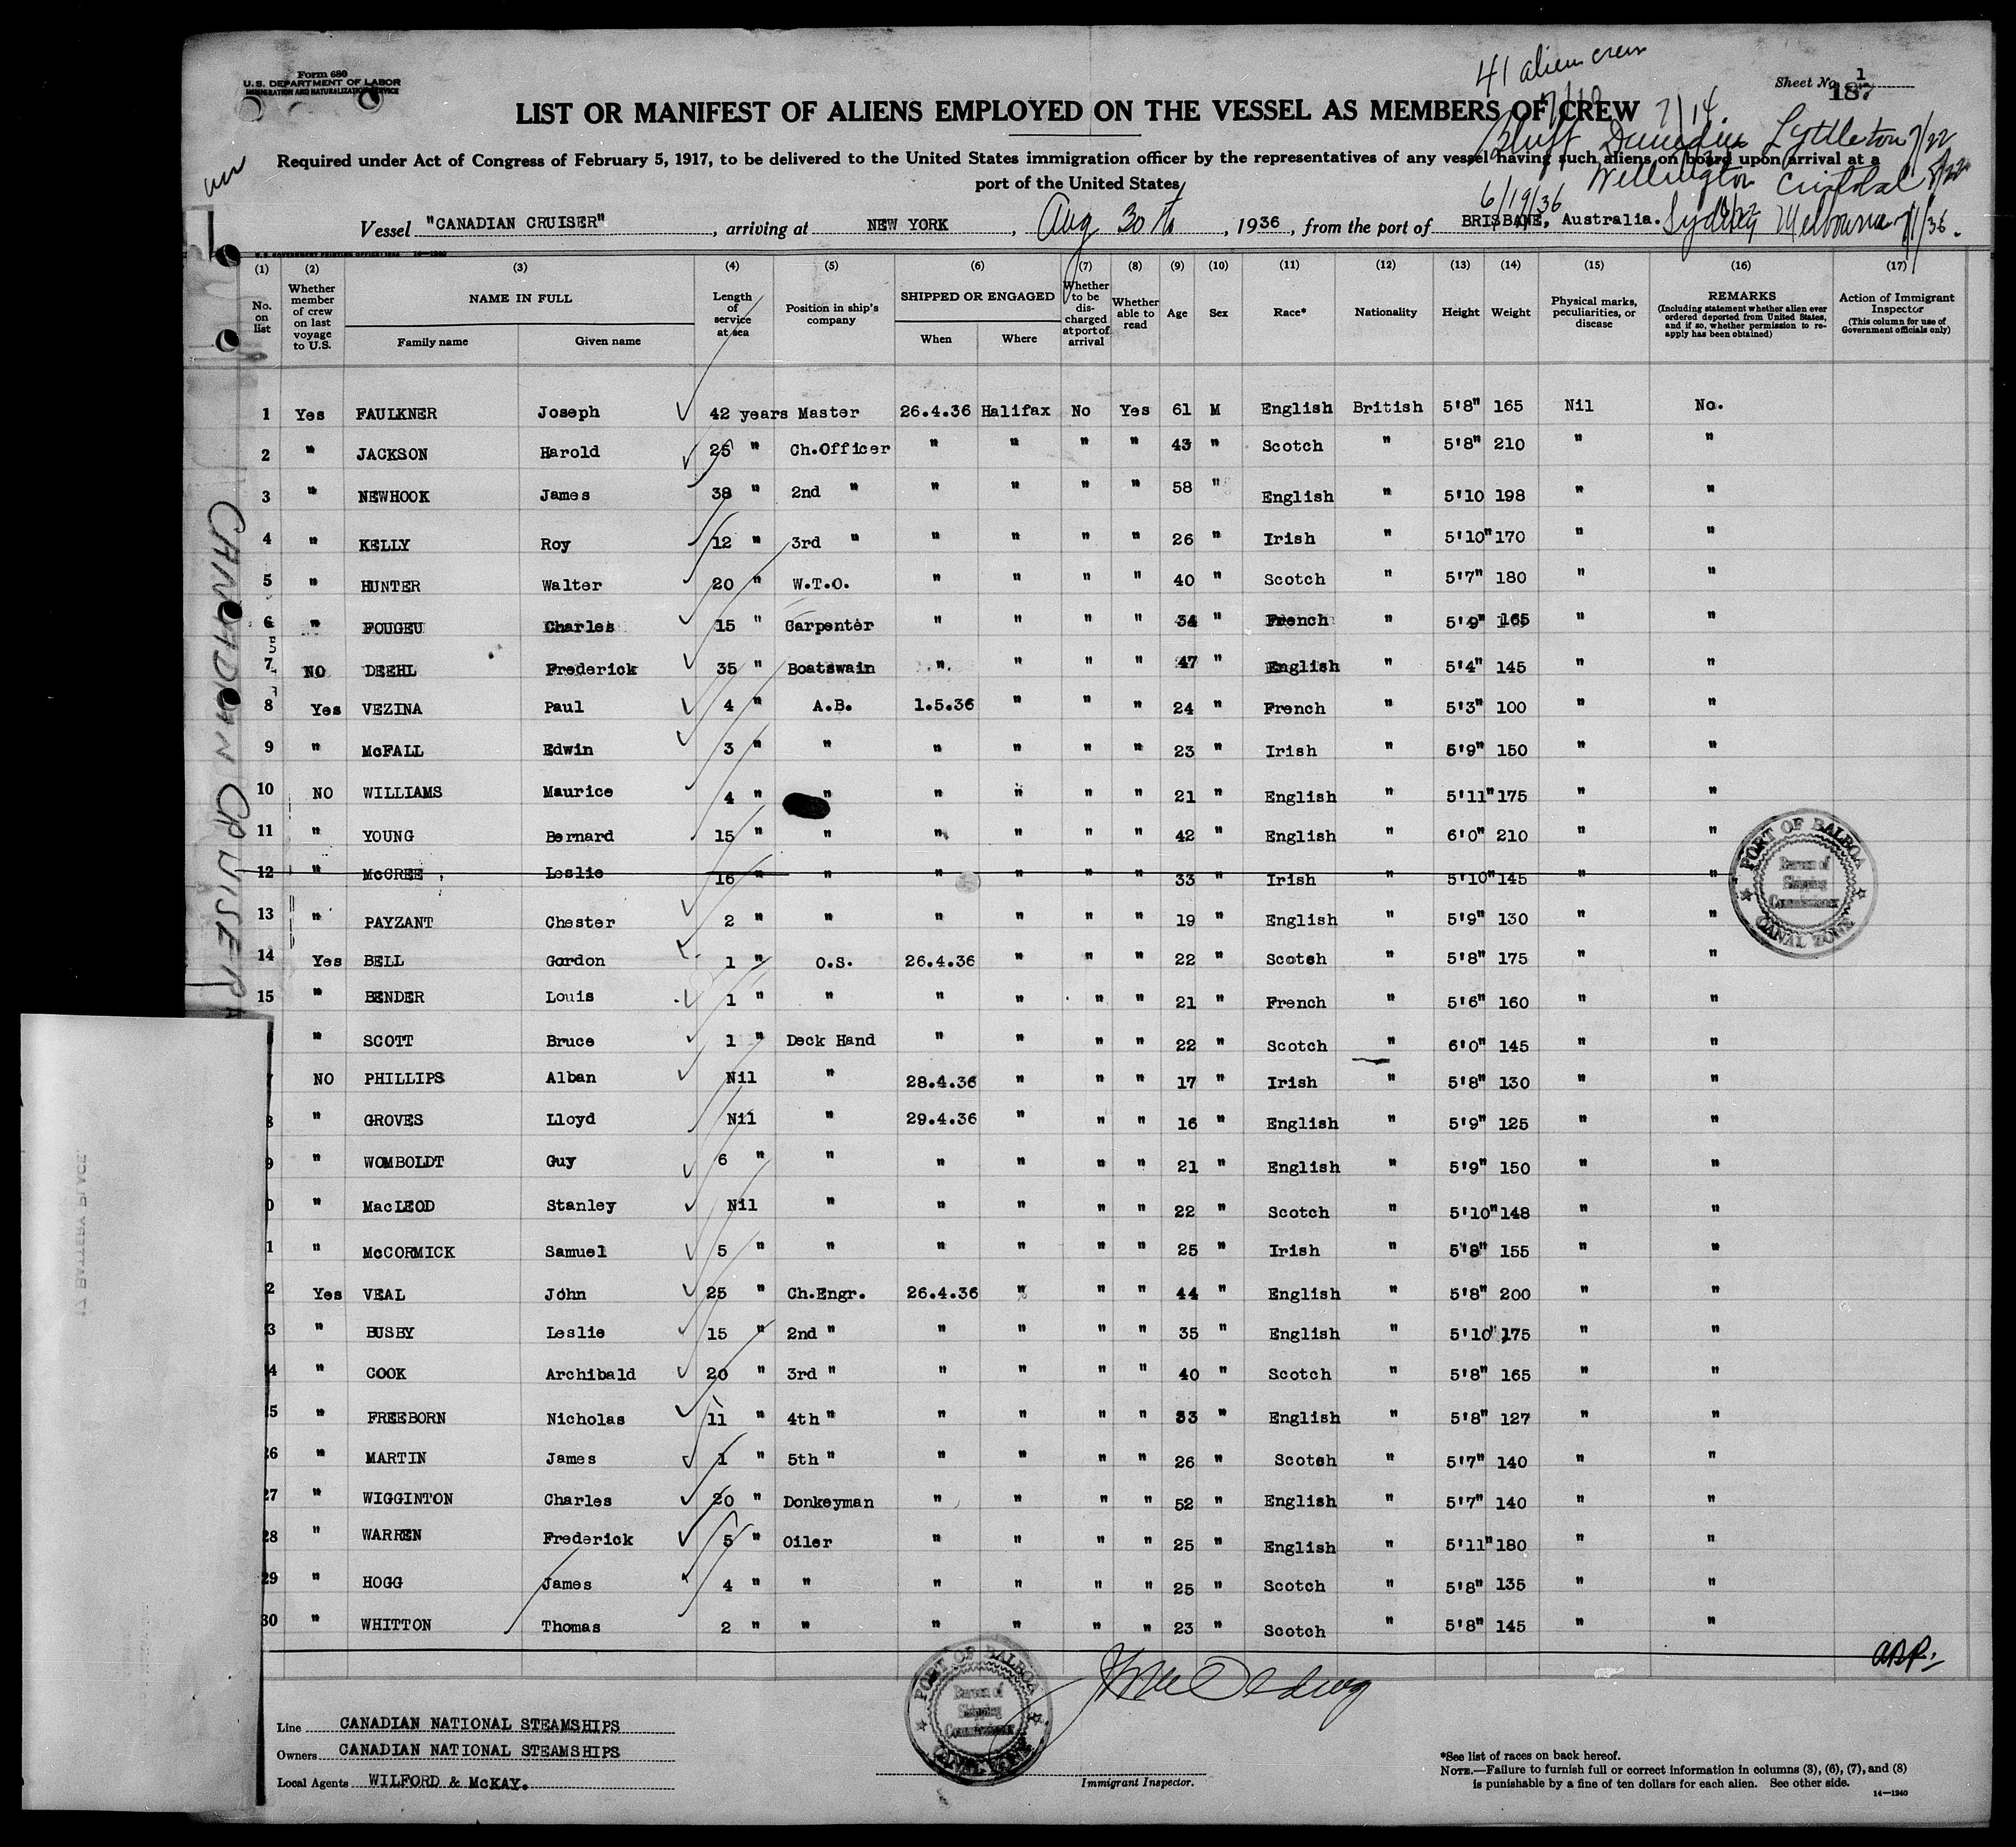 Form 680
U. S. DEPARTMENT OF LABOR
IMMIGRATION AND NATURALIZATION SERVICE
41 alien crew
Sheet No. 1
187
LIST OR MANIFEST OF ALIENS EMPLOYED ON THE VESSEL AS MEMBERS OF CREW
7/10 7/14
Bluff Dunedin Lyttleton 7/22
Required under Act of Congress of February 5, 1917, to be delivered to the United States immigration officer by the representatives of any vessel having such aliens on board upon arrival at a
port of the United States
Wellington Cristobal 8/22
6/19/36
Vessel "CANADIAN CRUISER", arriving at NEW YORK, Aug 30th, 1936, from the port of BRISBANE, Australia. Sydney Melbourne 7/1/36.
(1) (2) (3) (4) (5) (6) (7) (8) (9) (10) (11) (12) (13) (14) (15) (16) (17)
No. on list
Whether member of crew on last voyage to U.S.
NAME IN FULL
Family name Given name
Length of service at sea
Position in ship's company
SHIPPED OR ENGAGED
When Where
Whether to be discharged at port of arrival
Whether able to read
Age Sex Race* Nationality Height Weight
Physical marks, peculiarities, or disease
REMARKS
(Including statement whether alien ever ordered deported from United States, and if so, whether permission to reapply has been obtained)
Action of Immigrant Inspector
(This column for use of Government officials only)
1 Yes FAULKNER Joseph 42 years Master 26.4.36 Halifax No Yes 61 M English British 5'8" 165 Nil No.
2 " JACKSON Harold 25 " Ch.Officer " " " " 43 " Scotch " 5'8" 210 " "
3 " NEWHOOK James 38 " 2nd " " " " " 58 " English " 5'10 198 " "
4 " KELLY Roy 12 " 3rd " " " " " 26 " Irish " 5'10" 170 " "
5 " HUNTER Walter 20 " W.T.O. " " " " 40 " Scotch " 5'7" 180 " "
6 " FOUGEU Charles 15 " Carpenter " " " " 34 " French " 5'9" 165 " "
7 NO DEEHL Frederick 35 " Boatswain " " " " 47 " English " 5'4" 145 " "
8 Yes VEZINA Paul 4 " A.B. 1.5.36 " " " 24 " French " 5'3" 100 " "
9 " McFALL Edwin 3 " " " " " " 23 " Irish " 5'9" 150 " "
10 NO WILLIAMS Maurice 4 " " " " " " 21 " English " 5'11" 175 " "
11 " YOUNG Bernard 15 " " " " " " 42 " English " 6'0" 210 " "
12 " McCREE Leslie 16 " " " " " " 33 " Irish " 5'10" 145 " "
13 " PAYZANT Chester 2 " " " " " " 19 " English " 5'9" 130 " "
14 Yes BELL Gordon 1 " O.S. 26.4.36 " " " 22 " Scotch " 5'8" 175 " "
15 " BENDER Louis 1 " " " " " " 21 " French " 5'6" 160 " "
" SCOTT Bruce 1 " Deck Hand " " " " 22 " Scotch " 6'0" 145 " "
7 NO PHILLIPS Alban Nil " 28.4.36 " " " 17 " Irish " 5'8" 130 " "
8 " GROVES Lloyd Nil " 29.4.36 " " " 16 " English " 5'9" 125 " "
9 " WOMBOLDT Guy 6 " " " " " " 21 " English " 5'9" 150 " "
0 " MacLEOD Stanley Nil " " " " " 22 " Scotch " 5'10" 148 " "
1 " McCORMICK Samuel 5 " " " " " " 25 " Irish " 5'8" 155 " "
2 Yes VEAL John 25 " Ch.Engr. 26.4.36 " " " 44 " English " 5'8" 200 " "
3 " BUSBY Leslie 15 " 2nd " " " " " 35 " English " 5'10" 175 " "
4 " COOK Archibald 20 " 3rd " " " " " 40 " Scotch " 5'8" 165 " "
5 " FREEBORN Nicholas 11 " 4th " " " " " 33 " English " 5'8" 127 " "
26 " MARTIN James 1 " 5th " " " " " 26 " Scotch " 5'7" 140 " "
27 " WIGGINTON Charles 20 " Donkeyman " " " " 52 " English " 5'7" 140 " "
28 " WARREN Frederick 5 " Oiler " " " " 25 " English " 5'11" 180 " "
29 " HOGG James 4 " " " " " " 25 " Scotch " 5'8" 135 " "
30 " WHITTON Thomas 2 " " " " " " 23 " Scotch " 5'8" 145 " "
CANADIAN CRUISER
PORT OF BALBOA
Bureau of Shipping Commissioner
CANAL ZONE
PORT OF BALBOA
Bureau of Shipping Commissioner
CANAL ZONE
Line CANADIAN NATIONAL STEAMSHIPS
Owners CANADIAN NATIONAL STEAMSHIPS
Local Agents WILFORD & McKAY.
Immigrant Inspector.
*See list of races on back hereof.
NOTE.—Failure to furnish full or correct information in columns (3), (6), (7), and (8)
is punishable by a fine of ten dollars for each alien. See other side.
14—1240
17 BATTERY PLACE.